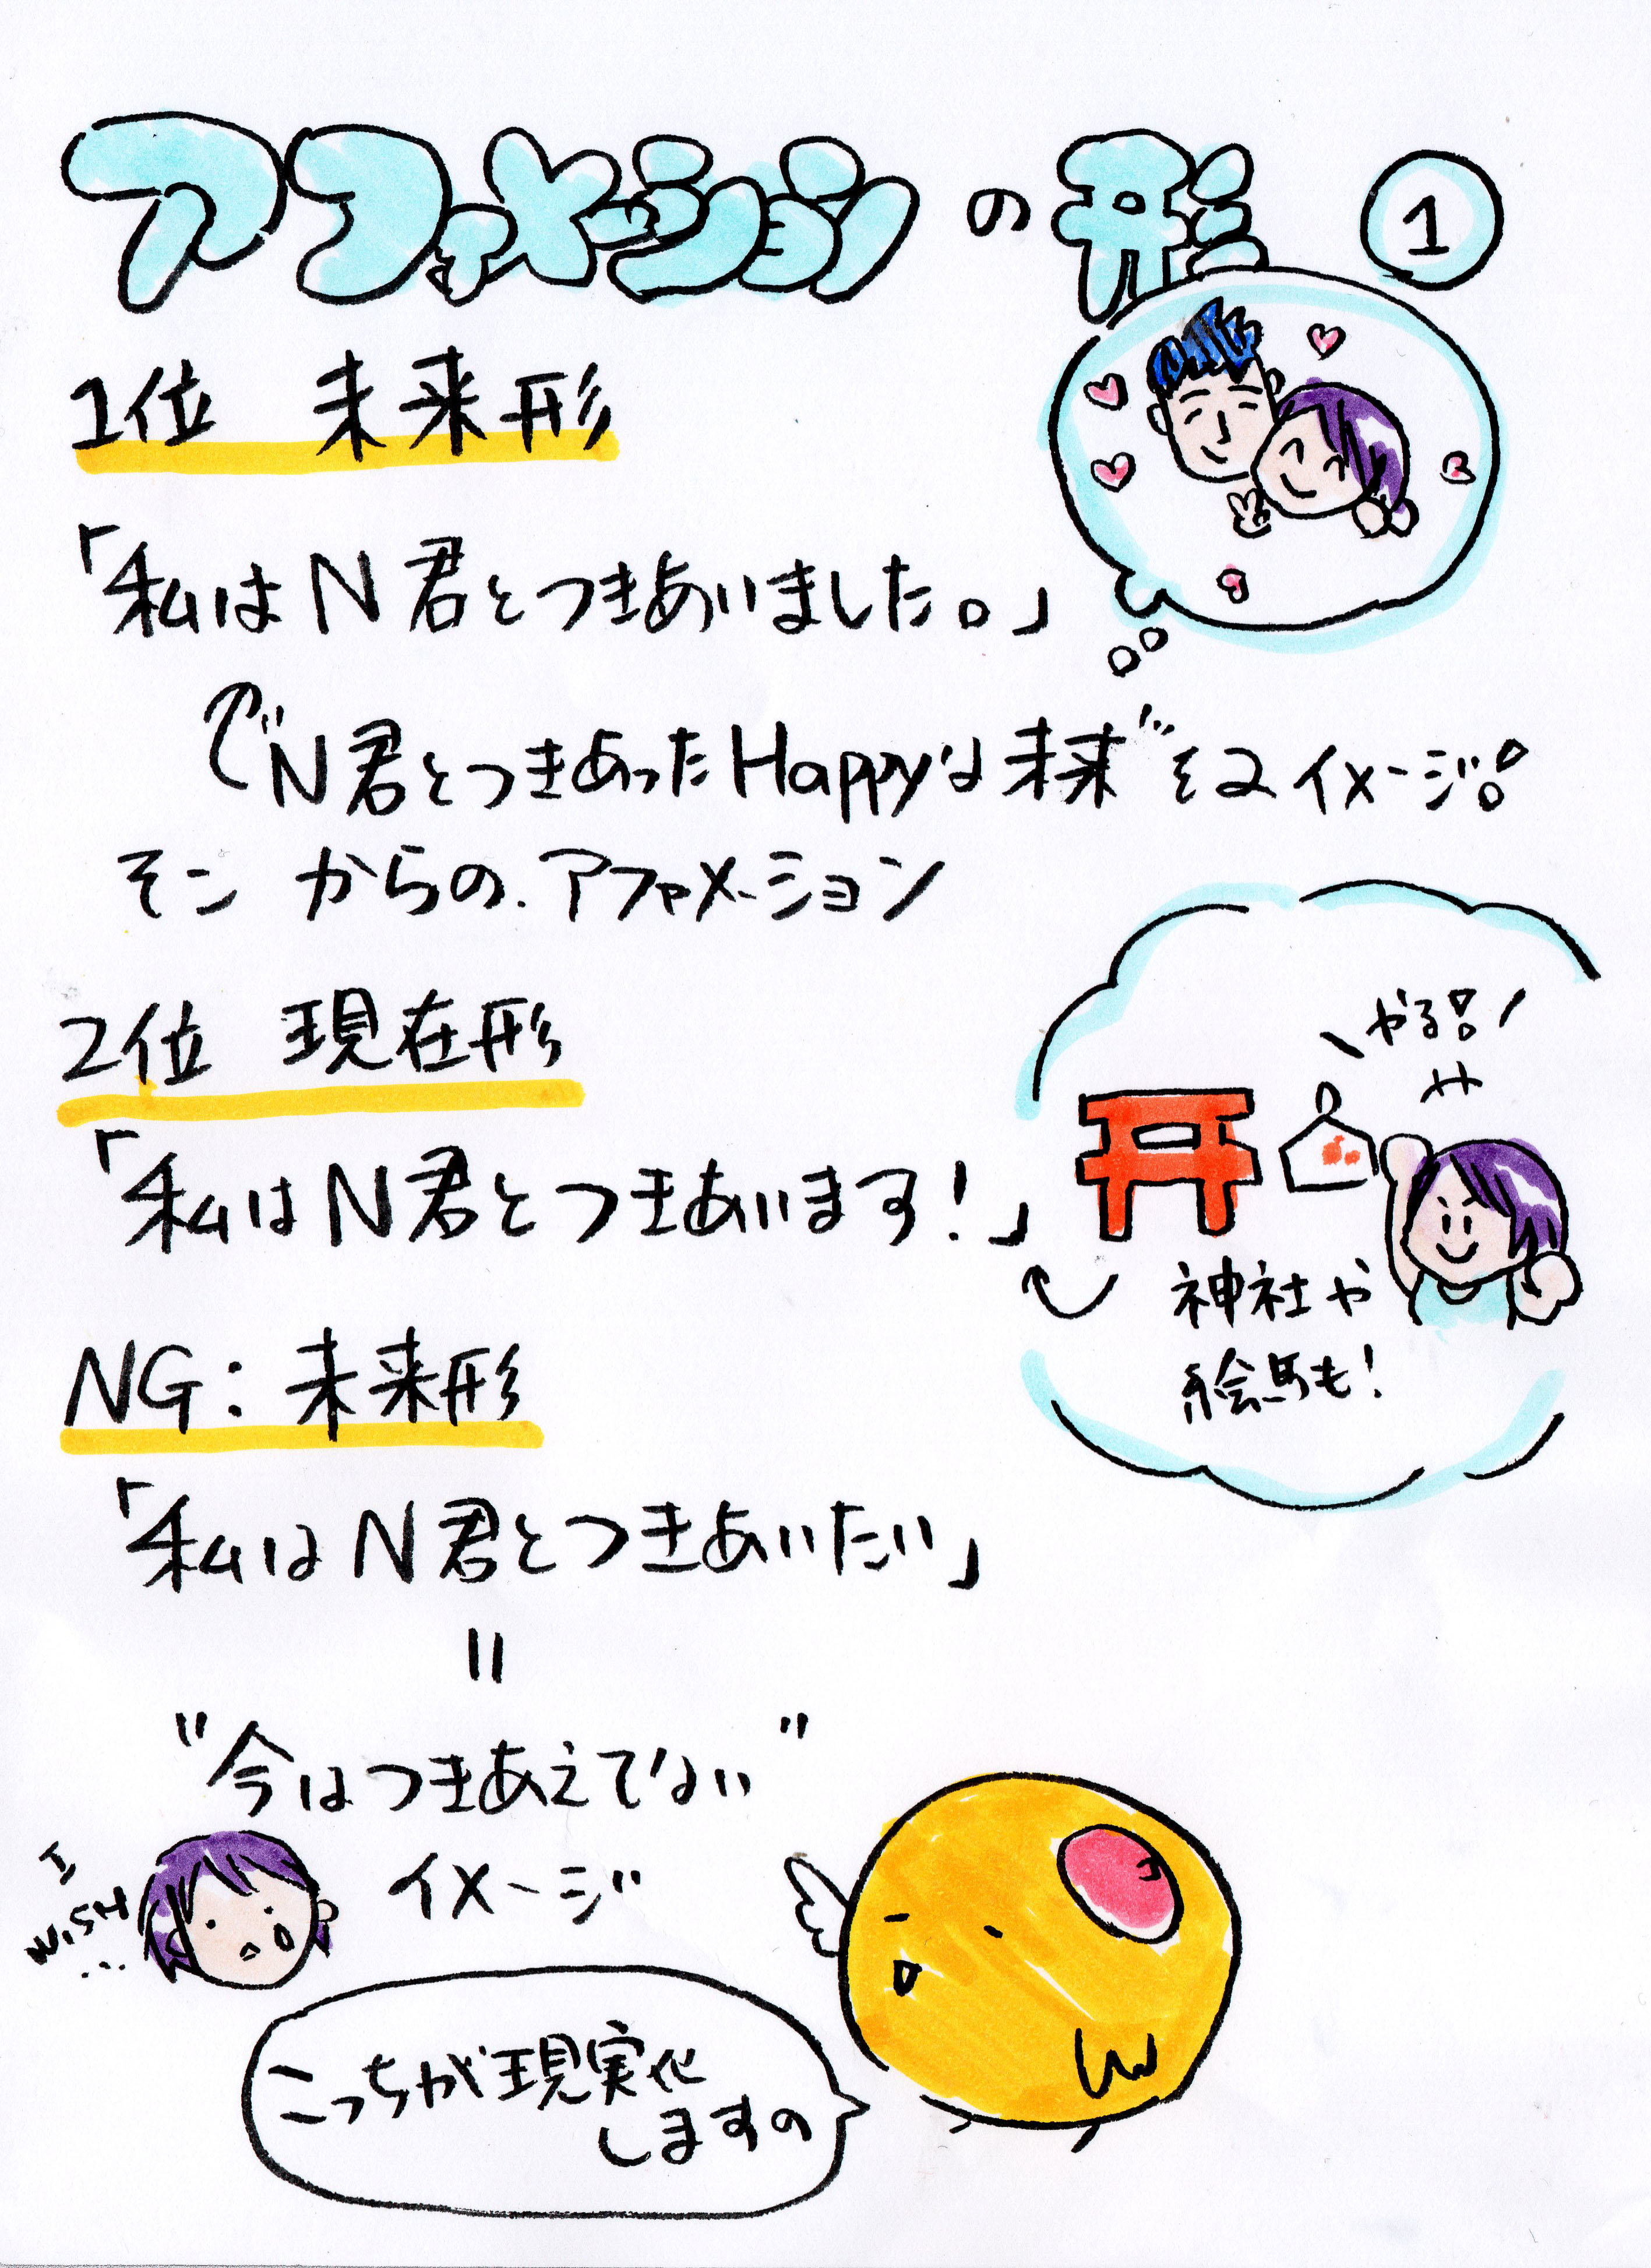 アファメーションの形 ①
1位 未来形
「私はN君とつきあいました。」
"N君とつきあったHappyな未来"をまずイメージ!
そこからの.アファメーション
2位 現在形
「私はN君とつきあいます!」
やる!!
神社や
絵馬も!
NG:未来形
「私はN君とつきあいたい」
=
"今はつきあえてない"
イメージ
I
WISH
...
こっちが現実化
しますの